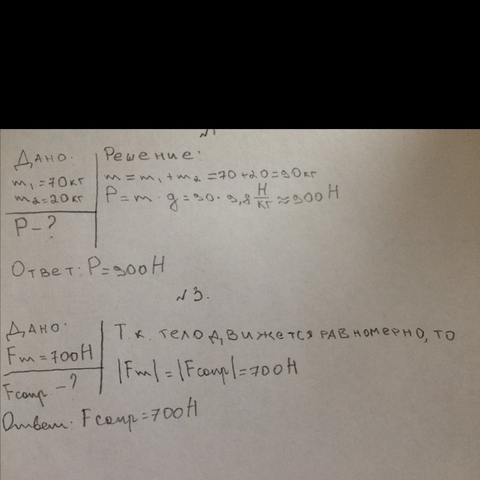 №1
Дано:
m₁=70кг
m₂=20кг
P-?
Решение:
m=m₁+m₂=70+20=90кг
P=m·g=90·9,8 Н/кг≈900Н
Ответ: P=900Н
№3.
Дано:
Fт=700Н
Fсопр-?
Т.к. тело движется равномерно, то
|Fт|=|Fсопр|=700Н
Ответ: Fсопр=700Н